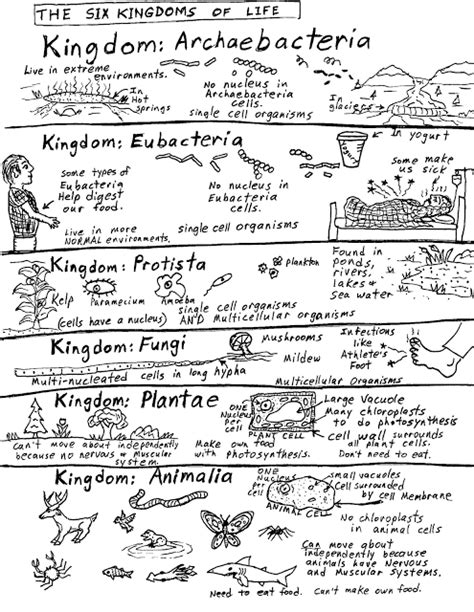 THE SIX KINGDOMS OF LIFE
Kingdom: Archaebacteria
Live in extreme
environments.
In
Hot
springs
No nucleus in
Archaebacteria
cells.
single cell organisms
In
glaciers
Kingdom: Eubacteria
Some types of
Eubacteria
Help digest
our food.
Live in more
NORMAL environments.
No nucleus in
Eubacteria
cells.
single cell organisms
Yogurt
In yogurt
Some make
us sick
Kingdom: Protista
Kelp
Paramecium
Amoeba
plankton
(cells have a nucleus)
single cell organisms
AND Multicellular organisms
Found in
ponds,
rivers,
lakes &
Sea water
Kingdom: Fungi
Mushrooms
Mildew
Multi-nucleated cells in long hypha
Multicellular Organisms
Infections
like
Athlete's
Foot
Kingdom: Plantae
Can't move about independently
because no nervous & Muscular
system.
ONE
Nucleus
Per
cell
PLANT CELL
Make own food
with photosynthesis.
Large Vacuole
Many chloroplasts
to do photosynthesis
cell wall surrounds
all plant cells.
Don't need to eat.
Kingdom: Animalia
ONE
Nucleus
Per
cell
ANIMAL CELL
small vacuoles
Cell surrounded
by cell Membrane
No chloroplasts
in animal cells
Can move about
independently because
animals have Nervous
and Muscular systems.
Need to eat food. Can't make own food.